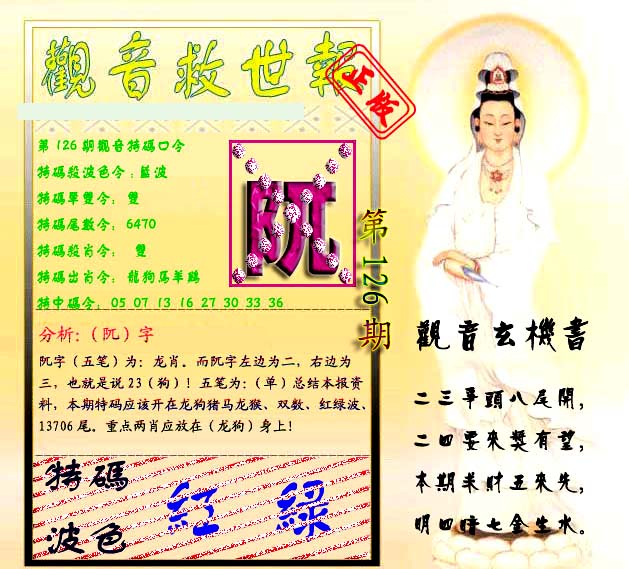 觀音救世報
正版
第126期觀音特碼口令
特碼殺波色令:藍波
特碼單雙令: 雙
特碼尾數令: 6470
特碼殺肖令: 雙
特碼出肖令: 龍狗馬羊鷄
特中碼令: 05 07 13 16 27 30 33 36
阢
第126期
分析:(阢)字
阢字(五笔)为:龙肖。而阢字左边为二，右边为
三，也就是说23(狗)！五笔为:(单)总结本报资
料，本期特码应该开在龙狗猪马龙猴、双数、红绿波、
13706尾。重点两肖应放在(龙狗)身上!
特碼
波色
紅 綠
觀音玄機書
二三爭頭八尾開,
二四要來獎有望,
本期求財五來先,
明四暗七金生水。